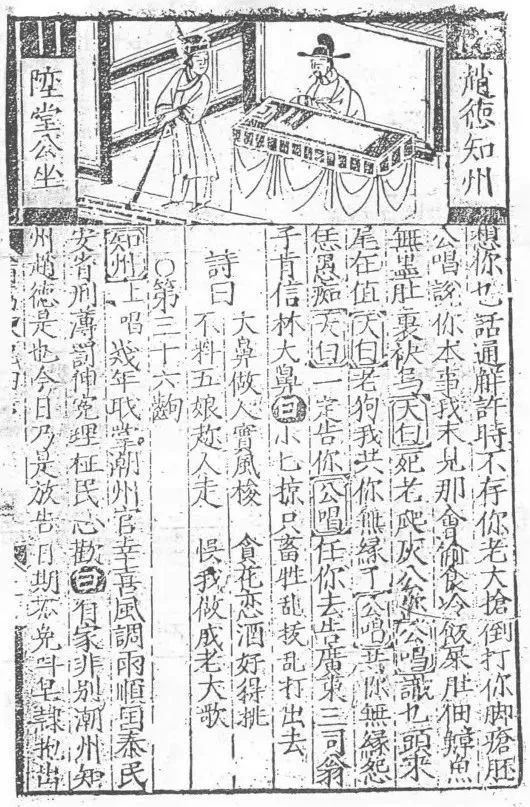 趙德知州
陞堂公坐
想你乜話通解許時不存你老大搶倒打你脚瘡胚
公唱說你本事我未見那會偷食冷飯肚佃魚
無肚裏袂天白死老爬灰公公唱識乜頭來
尾在值天白老狗我共你無緣了公唱你無緣怨
恁愚痴天白一定告你公唱任你去告廣東三司翁
子肯信林大鼻白小七掠只畜牲乱拔乱打出去
詩曰
大鼻做人實風梭 貪花恋酒好得挑
不料五娘趂人走 悞我做成老大歌
○第三十六齣
知州上唱 幾年职掌潮州官幸喜風調雨順国泰民
安省刑薄罰伸冤理枉民心歡白自家非别潮州知
州趙德是也今日乃是放告日期不免叫皂隸抱出